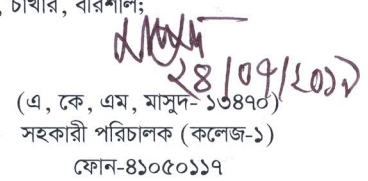 , চাখার, বরিশাল;
২৪/০৭/২০১৯
(এ, কে, এম, মাসুদ- ১৩৪৭০)
সহকারী পরিচালক (কলেজ-১)
ফোন-৪১০৫০১১৭